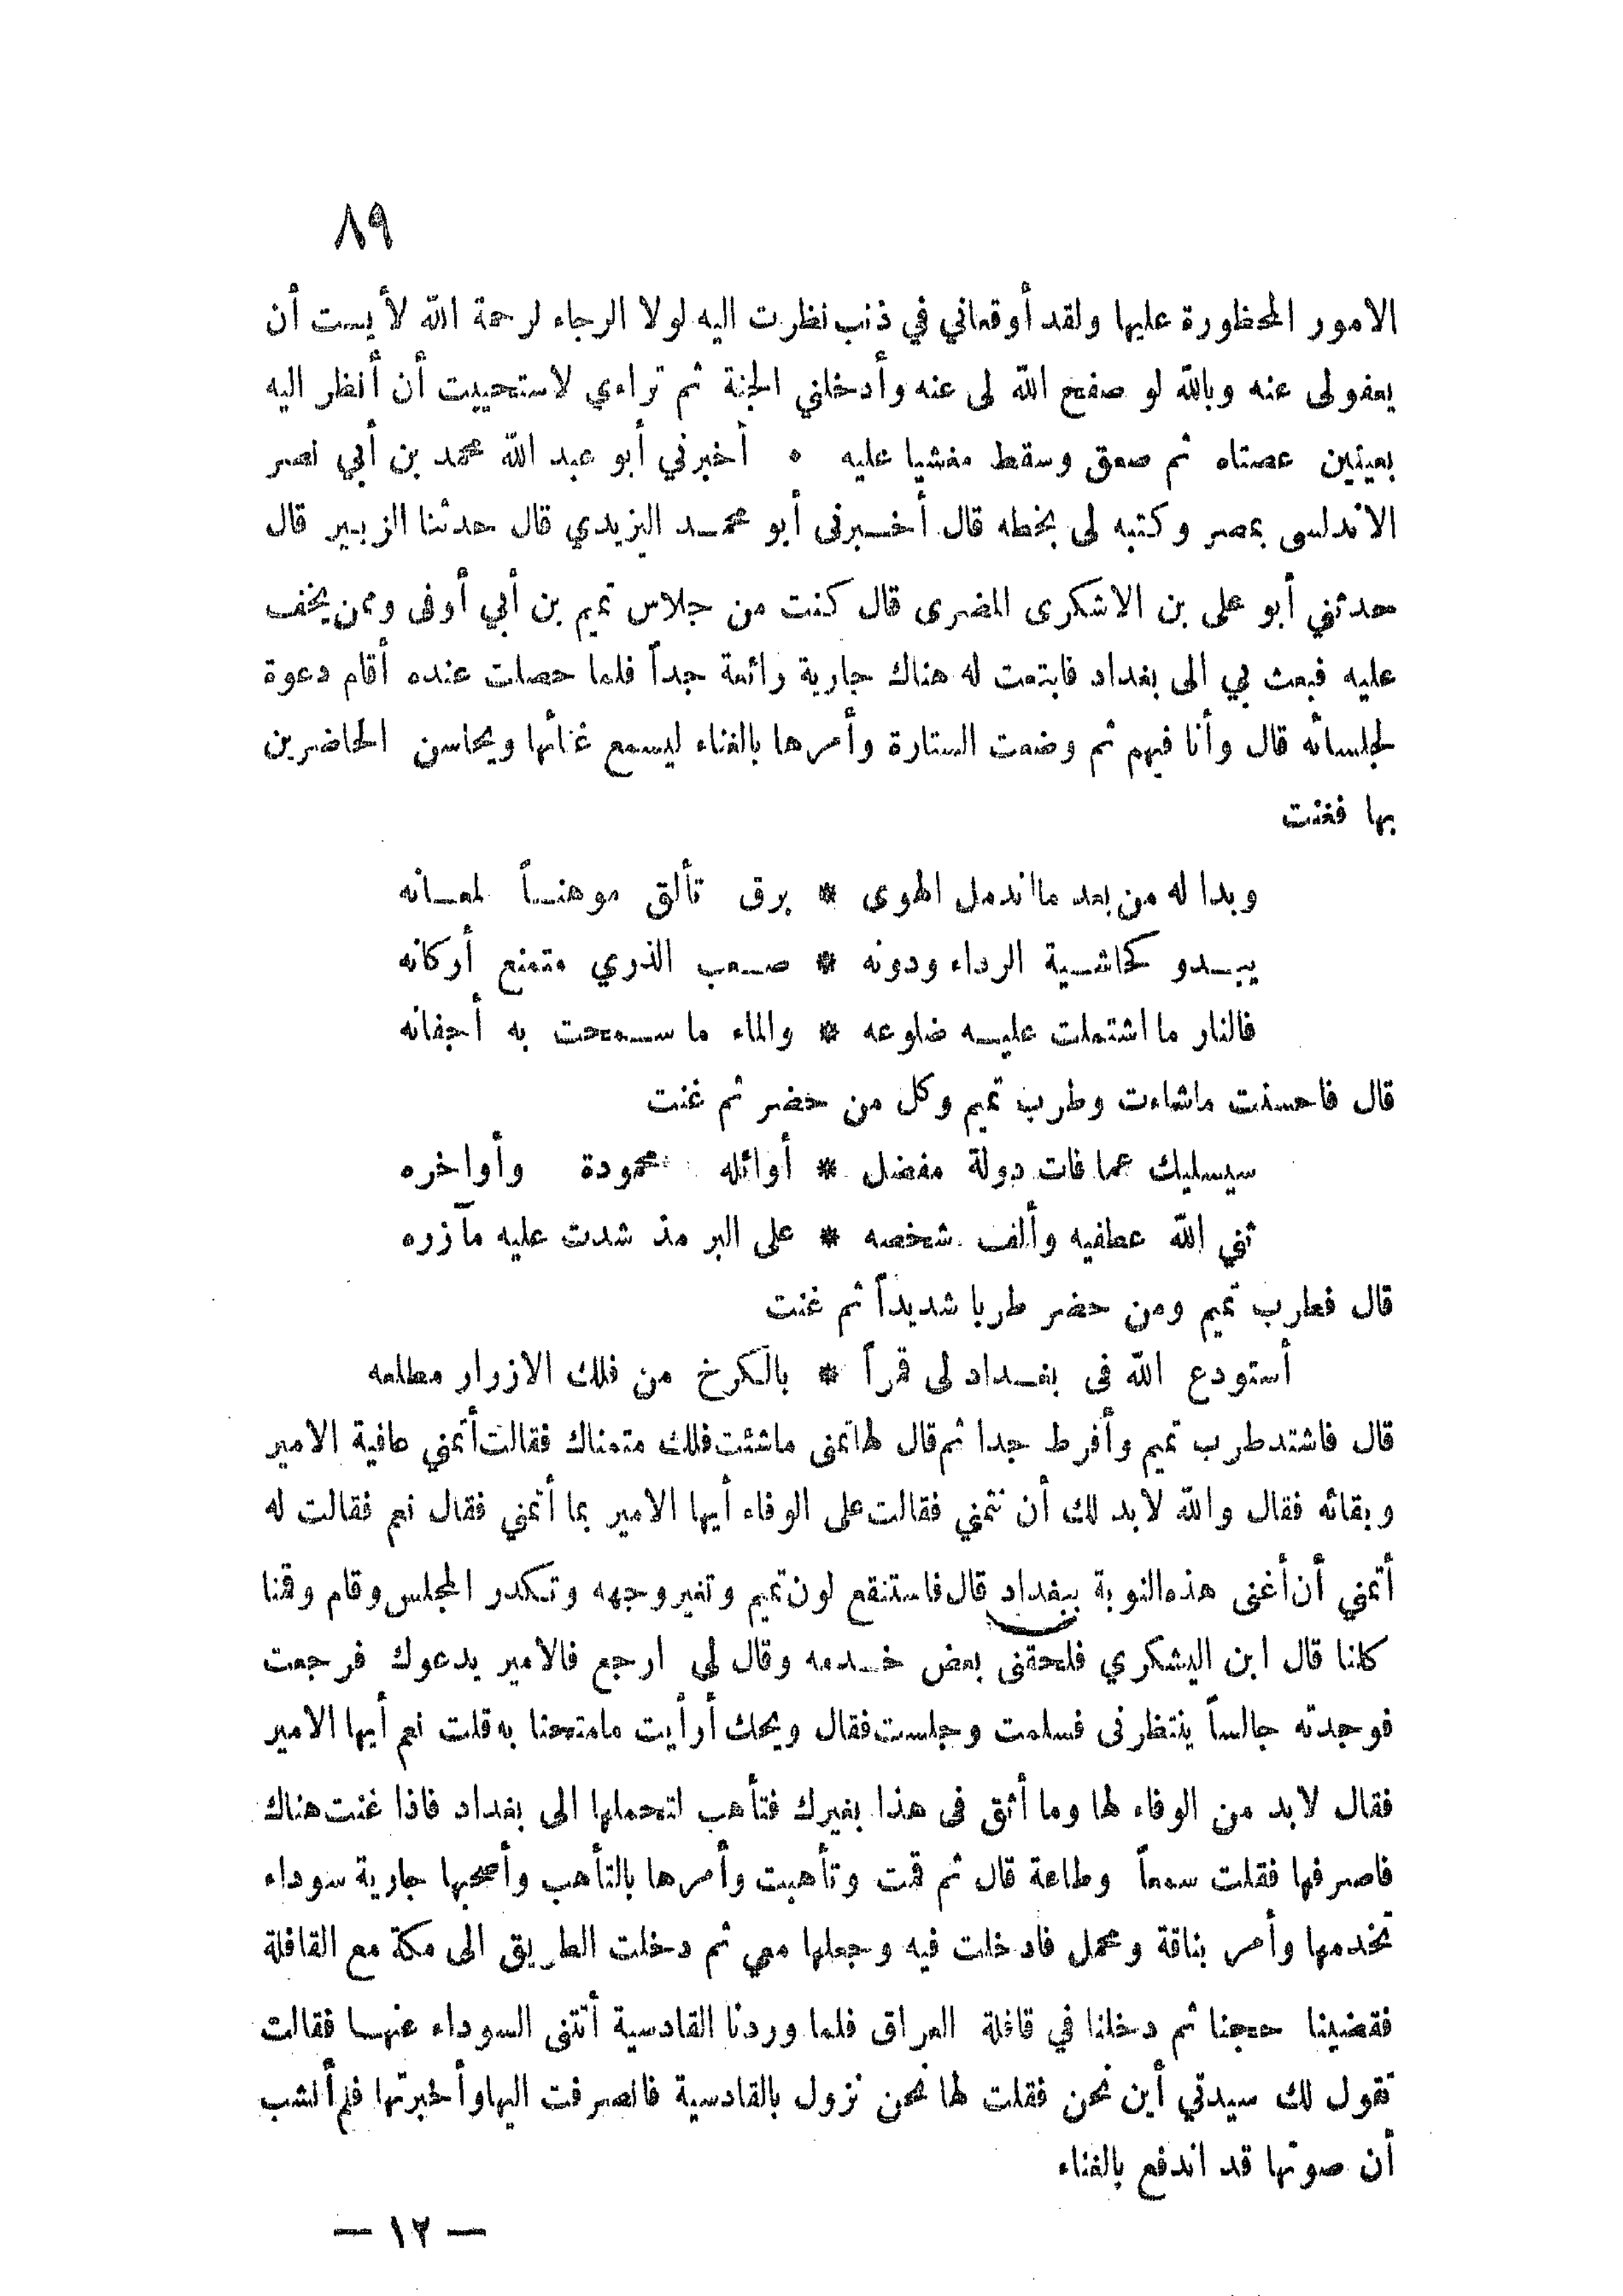 ٨٩
الامور المحظورة عليها ولقد أوقعاني في ذنب نظرت اليه لولا الرجاء لرحمة الله لأيست أن
يعفولى عنه وبالله لو صفح الله لى عنه وأدخلني الجنة ثم تراءي لاستحييت أن أنظر اليه
بعينين عصتاه ثم صعق وسقط مغشيا عليه ٠ أخبرني أبو عبد الله محمد بن أبي نصر
الاندلسى بمصر وكتبه لى بخطه قال أخبرنى أبو محمد اليزيدي قال حدثنا الزبير قال
حدثني أبو على بن الاشكرى المضرى قال كنت من جلاس تميم بن أبي أوفى وممن يخف
عليه فبعث بي الى بغداد فابتعت له هناك جارية رائعة جداً فلما حصلت عنده أقام دعوة
لجلسائه قال وأنا فيهم ثم وضعت الستارة وأمرها بالغناء ليسمع غنائها ويحاسن الحاضرين
بها فغنت
وبدا له من بعد ما اندمل الهوى * برق تألق موهناً لمعانه
يبدو كحاشية الرداء ودونه * صعب الذري متمنع أركانه
فالنار ما اشتملت عليه ضلوعه * والماء ما سمحت به أجفانه
قال فاحسنت ماشاءت وطرب تميم وكل من حضر ثم غنت
سيسليك عما فات دولة مفضل * أوائله محمودة وأواخره
ثني الله عطفيه وألف شخصه * على البر مذ شدت عليه مآزره
قال فطرب تميم ومن حضر طربا شديداً ثم غنت
أستودع الله فى بغداد لى قمراً * بالكرخ من فلك الازرار مطلعه
قال فاشتد طرب تميم وأفرط جدا ثم قال لها تمنى ماشئت فلك متمناك فقالت أتمني عافية الامير
وبقائه فقال والله لابد لك أن تتمني فقالت على الوفاء أيها الامير بما أتمني فقال نعم فقالت له
أتمني أن أغنى هذه النوبة ببغداد قال فاستنقع لون تميم وتغير وجهه وتكدر المجلس وقام وقمنا
كلنا قال ابن اليشكري فلحقنى بعض خدمه وقال لى ارجع فالامير يدعوك فرجعت
فوجدته جالساً ينتظرنى فسلمت وجلست فقال ويحك أرأيت مامتحنا به قلت نعم أيها الامير
فقال لابد من الوفاء لها وما أثق فى هذا بغيرك فتأهب لتحملها الى بغداد فاذا غنت هناك
فاصرفها فقلت سمعاً وطاعة قال ثم قمت وتأهبت وأمرها بالتأهب وأصحبها جارية سوداء
تخدمها وأمر بناقة ومحمل فادخلت فيه وجعلها معي ثم دخلت الطريق الى مكة مع القافلة
فقضينا حجنا ثم دخلنا في قافلة العراق فلما وردنا القادسية أتتنى السوداء عنها فقالت
تقول لك سيدتي أين نحن فقلت لها نحن نزول بالقادسية فانصرفت اليها وأخبرتها فلم أنشب
أن صوتها قد اندفع بالغناء
— ١٢ —